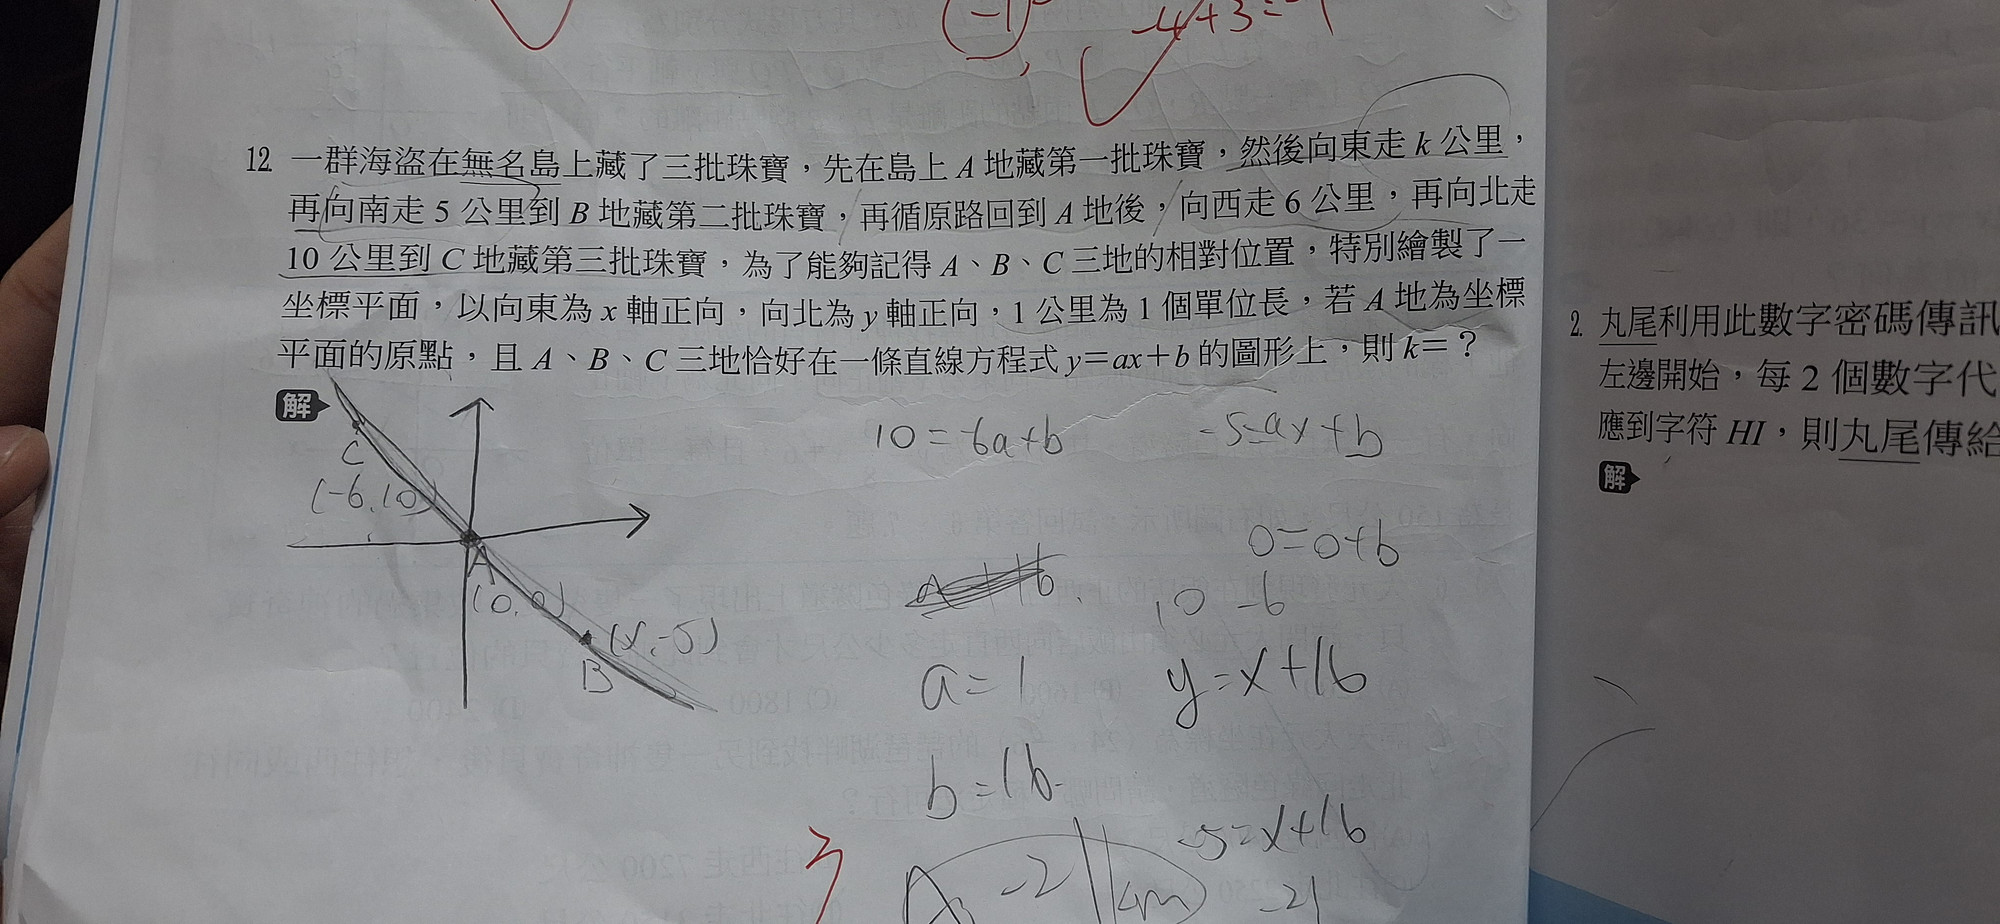 (-1)
-4+3=-1
12. 一群海盜在無名島上藏了三批珠寶，先在島上 A 地藏第一批珠寶，然後向東走 k 公里，
再向南走 5 公里到 B 地藏第二批珠寶，再循原路回到 A 地後，向西走 6 公里，再向北走
10 公里到 C 地藏第三批珠寶，為了能夠記得 A、B、C 三地的相對位置，特別繪製了一
坐標平面，以向東為 x 軸正向，向北為 y 軸正向，1 公里為 1 個單位長，若 A 地為坐標
平面的原點，且 A、B、C 三地恰好在一條直線方程式 y=ax+b 的圖形上，則 k=？
解
C
(-6,10)
A
(0,0)
(x,-5)
B
10=-6a+b
-5=ax+b
0=0+b
10 -6
a=1
y=x+16
b=16
-5=x+16
-21
3
2. 丸尾利用此數字密碼傳訊
左邊開始，每 2 個數字代
應到字符 HI，則丸尾傳給
解